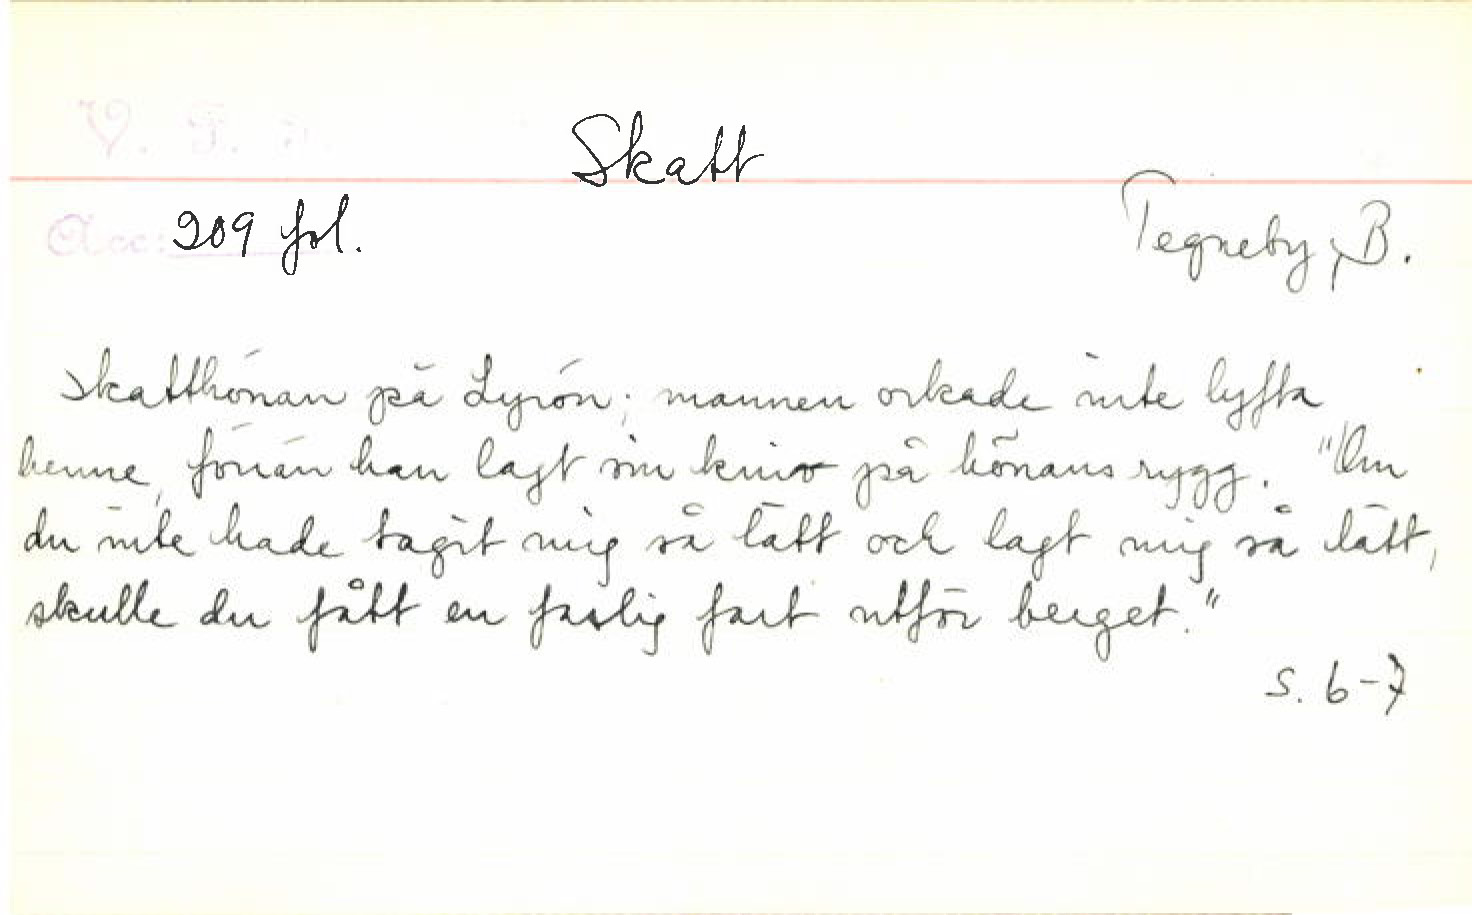 V. F. A.
Skatt
Acc: 209 fol.
Tegneby, B.
Skatthönan på Lyrön; mannen orkade inte lyfta
henne, förrän han lagt sin kniv på hönans rygg. "Om
du inte hade tagit mig så lätt och lagt mig så lätt,
skulle du fått en faslig fart utför berget."
s. 6-7